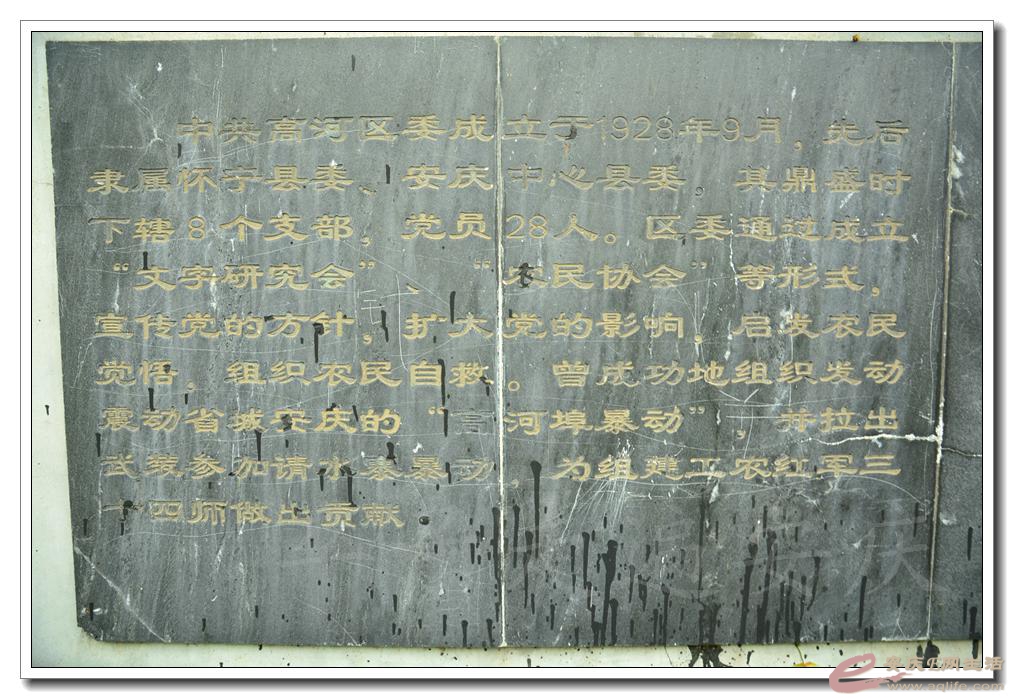 中共高河区委成立于1928年9月，先后
隶属怀宁县委、安庆中心县委，其鼎盛时
下辖8个支部，党员28人。区委通过成立
“文字研究会”、“农民协会”等形式，
宣传党的方针，扩大党的影响，启发农民
觉悟，组织农民自救。曾成功地组织发动
震动省城安庆的“高河埠暴动”，并拉出
武装参加请水寨暴动，为组建工农红军三
十四师做出贡献。
安庆E网生活
www.aqlife.com